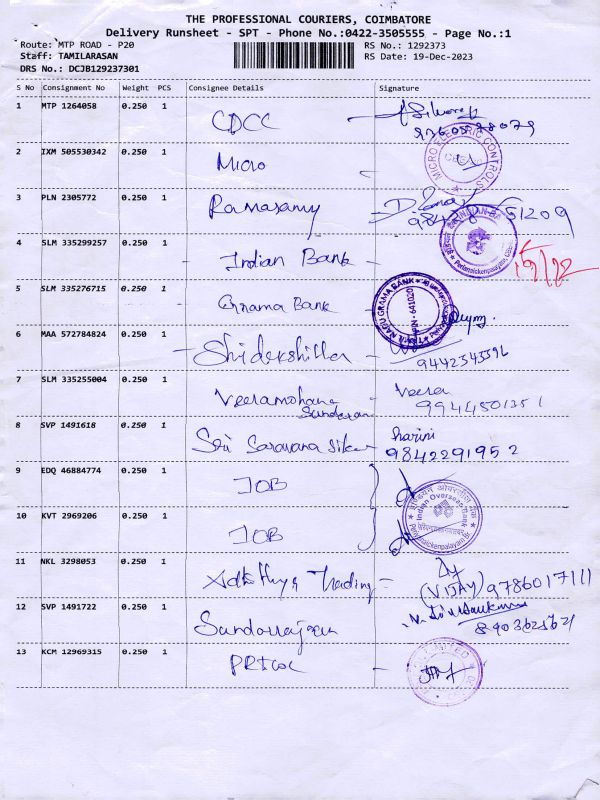 THE PROFESSIONAL COURIERS, COIMBATORE
Delivery Runsheet - SPT - Phone No.:0422-3505555 - Page No.:1
Route: MTP ROAD - P20 RS No.: 1292373
Staff: TAMILARASAN RS Date: 19-Dec-2023
DRS No.: DCJB129237301
S No Consignment No Weight PCS Consignee Details Signature
1 MTP 1264058 0.250 1 CDCC
2 IXM 505530342 0.250 1 Micro MICRO ELECTRIC CONTROLS
3 PLN 2305772 0.250 1 Ramasamy
4 SLM 335299257 0.250 1 Indian Bank
5 SLM 335276715 0.250 1 Grama Bank TAMIL NADU GRAMA BANK PIN - 641020
6 MAA 572784824 0.250 1
7 SLM 335255004 0.250 1 Veeramohana Sundaran Veera
9944501351
8 SVP 1491618 0.250 1 Sri Saravana Harini
9842291952
9 EDQ 46884774 0.250 1 IOB
Indian Overseas Bank
10 KVT 2969206 0.250 1 IOB
11 NKL 3298053 0.250 1 Trading (VIJAY) 9786017111
12 SVP 1491722 0.250 1
13 KCM 12969315 0.250 1 PRICOL